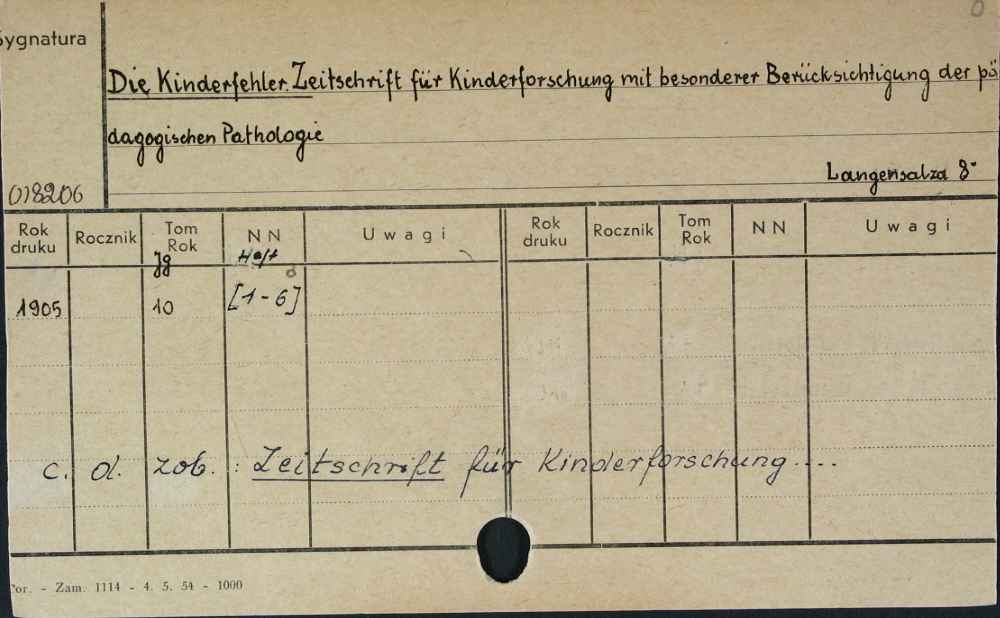 Sygnatura
Die Kinderfehler. Zeitschrift für Kinderforschung mit besonderer Berücksichtigung der pä
dagogischen Pathologie
Langensalza 8°
018206
Rok druku Rocznik Tom Rok N N U w a g i Rok druku Rocznik Tom Rok N N U w a g i
Jg Heft
1905 10 [1-6]
c. d. zob. : Zeitschrift für Kinderforschung....
or. - Zam. 1114 - 4. 5. 54 - 1000